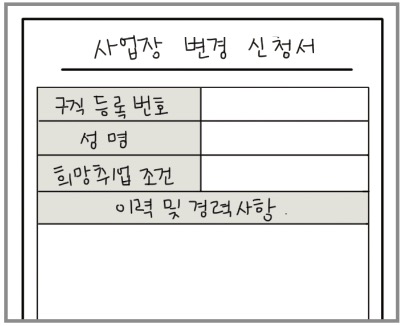 사업장 변경 신청서
구직 등록 번호
성 명
희망취업 조건
이력 및 경력사항.